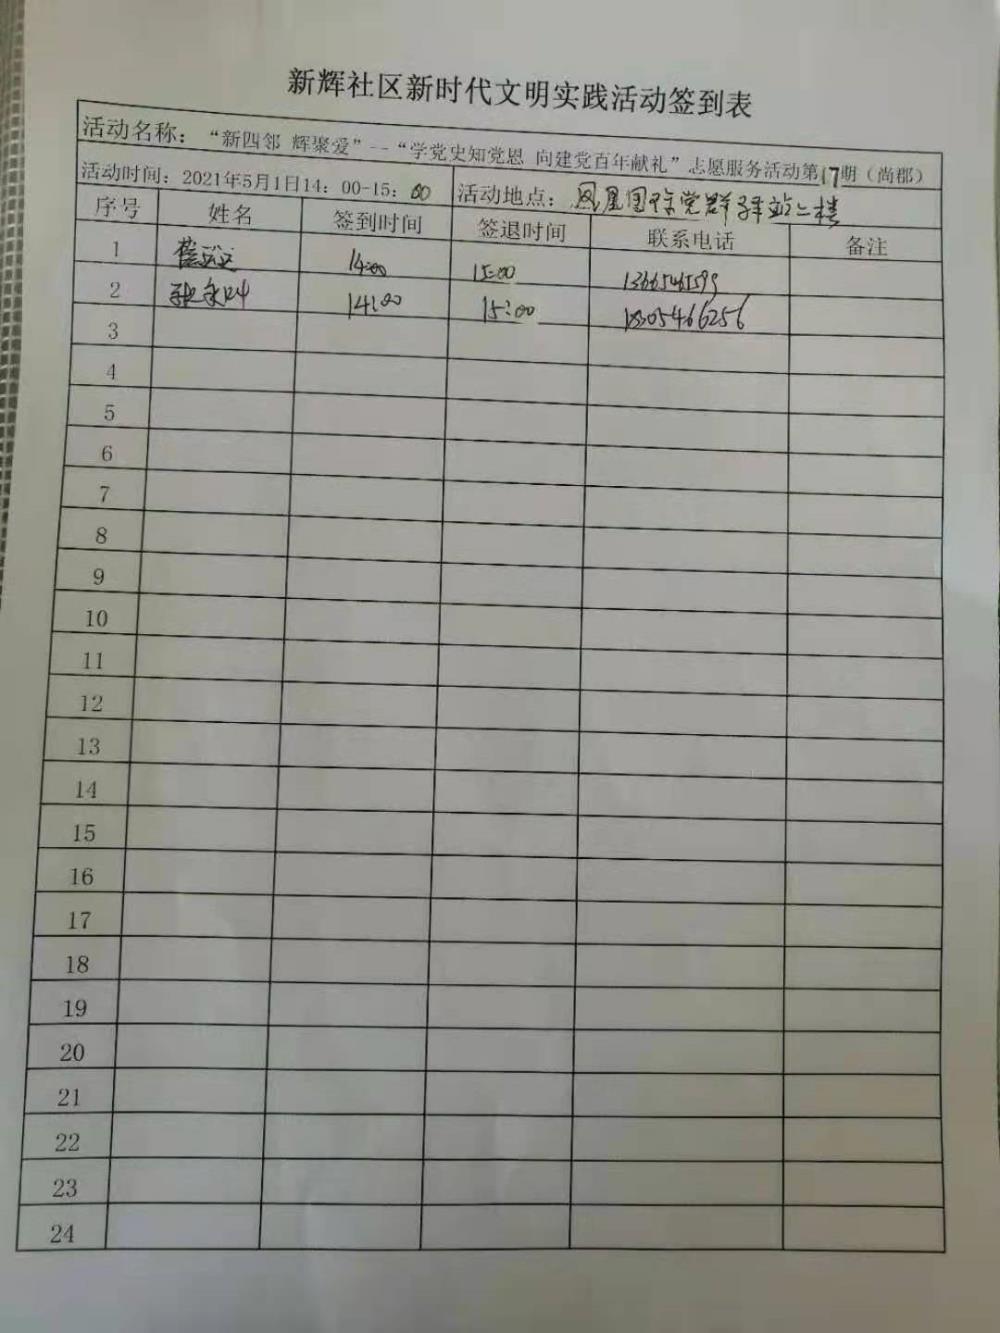 新辉社区新时代文明实践活动签到表
活动名称：“新四邻 辉聚爱”--“学党史知党恩 向建党百年献礼”志愿服务活动第17期（尚郡）
活动时间：2021年5月1日14：00-15：00 活动地点：凤凰国际党群驿站二楼
序号 姓名 签到时间 签退时间 联系电话 备注
1 14:00 15:00
2 14:00 15:00 1805466256
3
4
5
6
7
8
9
10
11
12
13
14
15
16
17
18
19
20
21
22
23
24